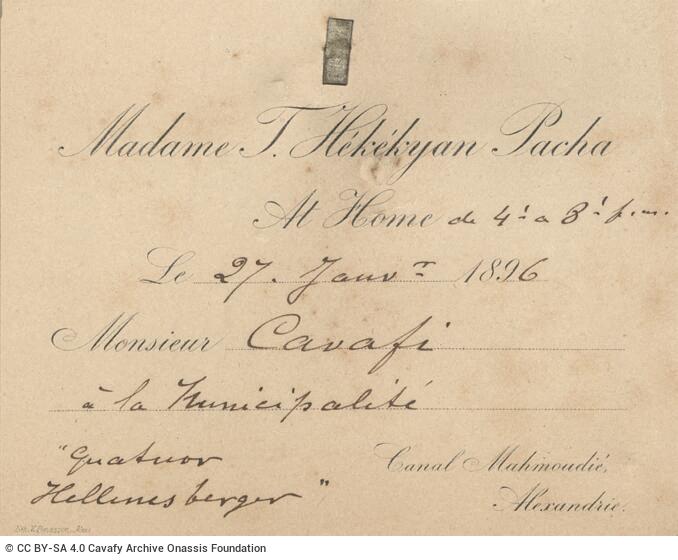 Madame T. Hékékyan Pacha
At Home de 4 à 8 p.m.
Le 27. Janvr 1896
Monsieur Cavafi
à la Municipalité
"Quatuor
Hellmesberger"
Canal Mahmoudié,
Alexandrie.
© CC BY-SA 4.0 Cavafy Archive Onassis Foundation